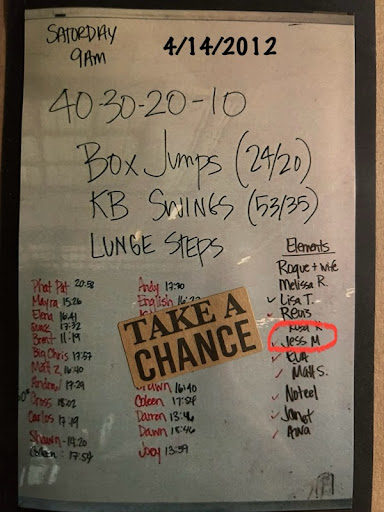 SATURDAY
9AM
4/14/2012
40-30-20-10
BOX JUMPS (24/20)
KB SWINGS (53/35)
LUNGE STEPS
Phat Pat 20:58
Mayra 15:26
Elena 16:41
17:32
Brent 11:19
Big Chris 17:57
Matt Z 16:40
Andrew 17:29
Cross 18:02
Carlos 17:19
Shawn - 14:20
17:54
Andy 17:30
English
TAKE A
CHANCE
16:40
Coleen 17:54
Darren 13:46
Dawn 15:46
Joey 13:59
Elements
Roque + wife
Melissa R.
Lisa T.
Revis
Jess M
EVA
Matt S.
Noteel
Janet